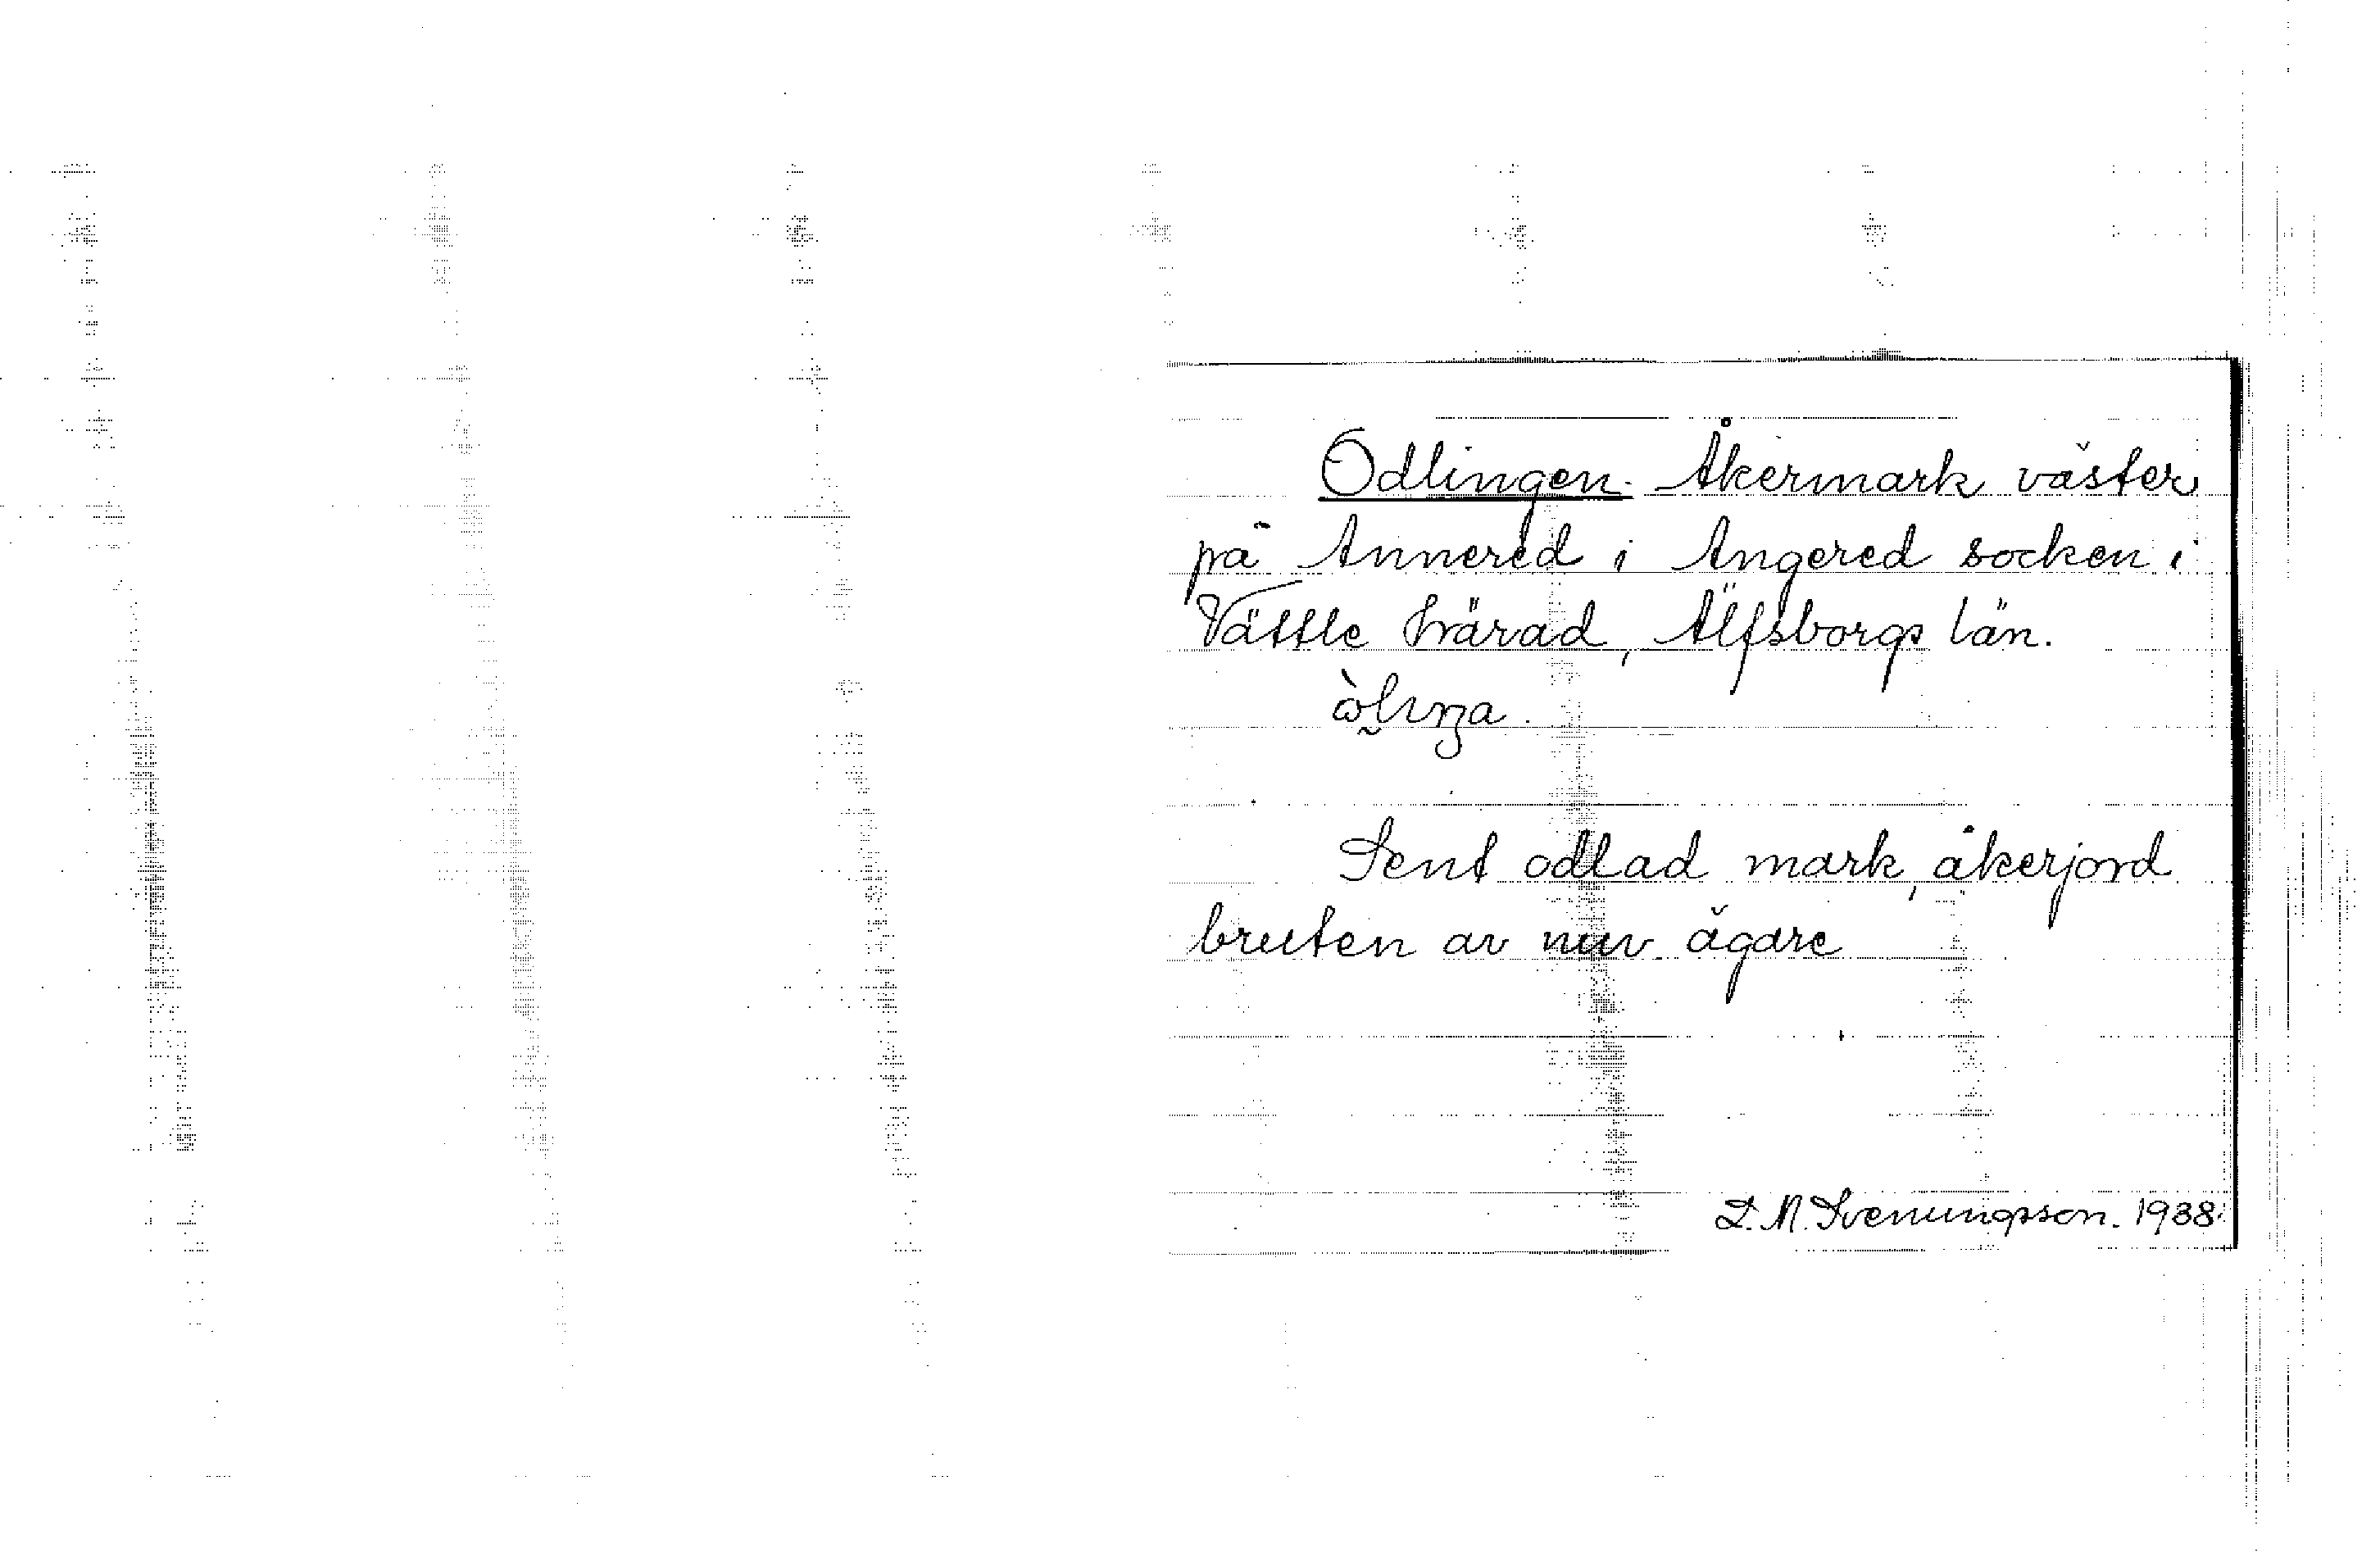 Odlingen. Åkermark väster
på Annered i Angered socken i
Vättle härad, Älfsborgs län.
Sent odlad mark, åkerjord
bruten av nuv. ägare
D. N. Svenungsson. 1938.